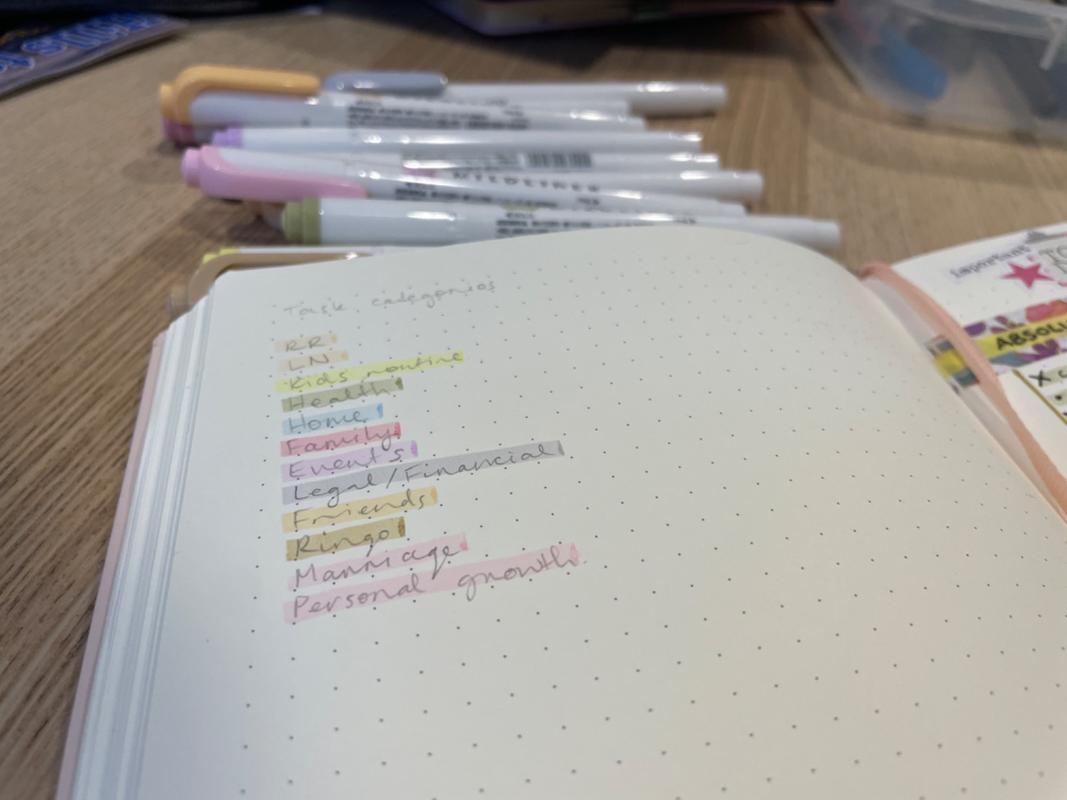 MILDLINER
Task categories
RR
LN
Kids routine
Health
Home
Family
Events
Legal/Financial
Friends
Ringo
Marriage
Personal growth
important
ABSOLU
X